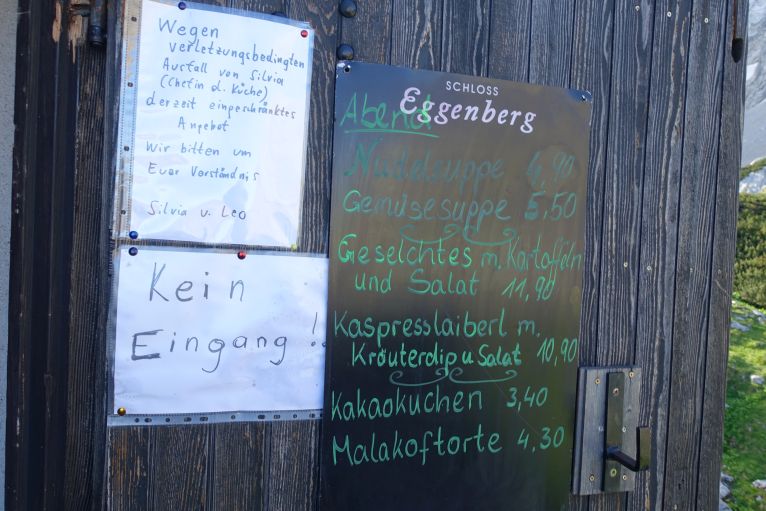 Wegen
verletzungsbedingten
Ausfall von Silvia
(Chefin d. Küche)
derzeit eingeschränktes
Angebot
Wir bitten um
Euer Verständnis
Silvia u. Leo
Kein
Eingang!
SCHLOSS
Eggenberg
Abend
Nudelsuppe 4,90
Gemüsesuppe 5,50
Geselchtes m. Kartoffeln
und Salat 11,90
Kaspresslaiberl m.
Kräuterdip u Salat 10,90
Kakaokuchen 3,40
Malakoftorte 4,30